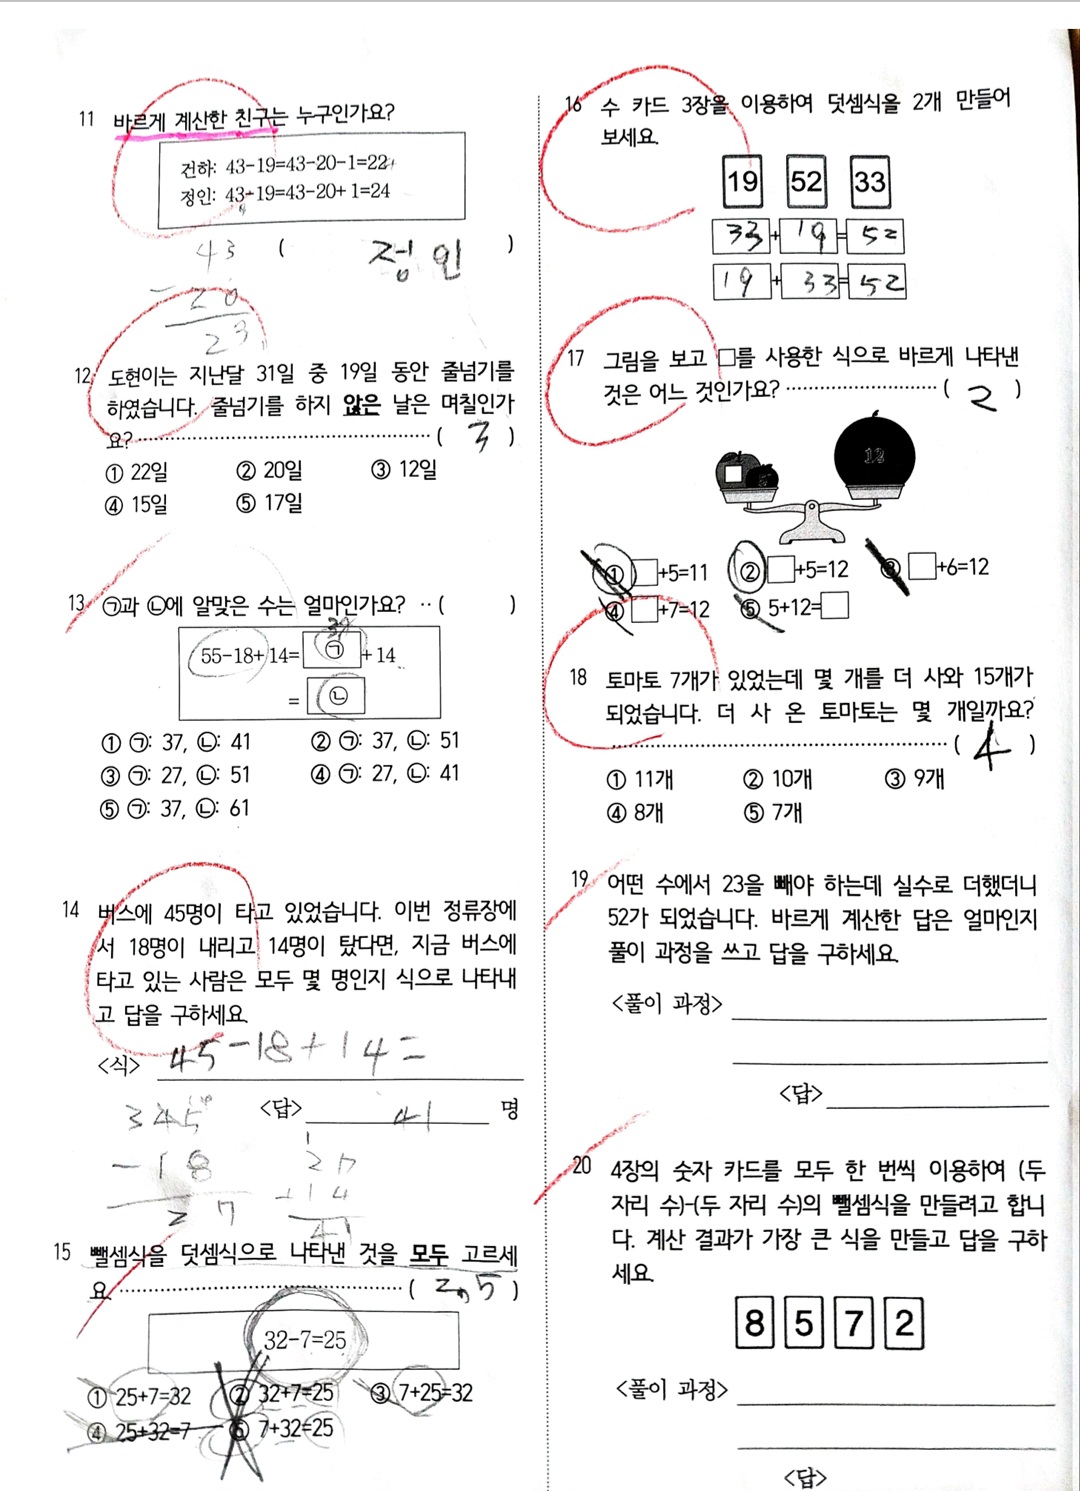 11 바르게 계산한 친구는 누구인가요?
건하: 43-19=43-20-1=22
정인: 43-19=43-20+1=24
( 정인 )
43
-20
23
12 도현이는 지난달 31일 중 19일 동안 줄넘기를
하였습니다. 줄넘기를 하지 않은 날은 며칠인가
요? ( 3 )
① 22일 ② 20일 ③ 12일
④ 15일 ⑤ 17일
13 ㉠과 ㉡에 알맞은 수는 얼마인가요? ( )
55-18+14= ㉠ +14
= ㉡
① ㉠: 37, ㉡: 41 ② ㉠: 37, ㉡: 51
③ ㉠: 27, ㉡: 51 ④ ㉠: 27, ㉡: 41
⑤ ㉠: 37, ㉡: 61
14 버스에 45명이 타고 있었습니다. 이번 정류장에
서 18명이 내리고 14명이 탔다면, 지금 버스에
타고 있는 사람은 모두 몇 명인지 식으로 나타내
고 답을 구하세요.
<식> 45-18+14=
<답> 41 명
345
-18
27
1
27
+14
41
15 뺄셈식을 덧셈식으로 나타낸 것을 모두 고르세
요. ( 2, 5 )
32-7=25
① 25+7=32 ② 32+7=25 ③ 7+25=32
④ 25+32=7 ⑤ 7+32=25
16 수 카드 3장을 이용하여 덧셈식을 2개 만들어
보세요.
19 52 33
33 + 19 = 52
19 + 33 = 52
17 그림을 보고 □를 사용한 식으로 바르게 나타낸
것은 어느 것인가요? ( 2 )
12
① □+5=11 ② □+5=12 ③ □+6=12
④ □+7=12 ⑤ 5+12=□
18 토마토 7개가 있었는데 몇 개를 더 사와 15개가
되었습니다. 더 사 온 토마토는 몇 개일까요?
( 4 )
① 11개 ② 10개 ③ 9개
④ 8개 ⑤ 7개
19 어떤 수에서 23을 빼야 하는데 실수로 더했더니
52가 되었습니다. 바르게 계산한 답은 얼마인지
풀이 과정을 쓰고 답을 구하세요.
<풀이 과정>
<답>
20 4장의 숫자 카드를 모두 한 번씩 이용하여 (두
자리 수)-(두 자리 수)의 뺄셈식을 만들려고 합니
다. 계산 결과가 가장 큰 식을 만들고 답을 구하
세요.
8 5 7 2
<풀이 과정>
<답>